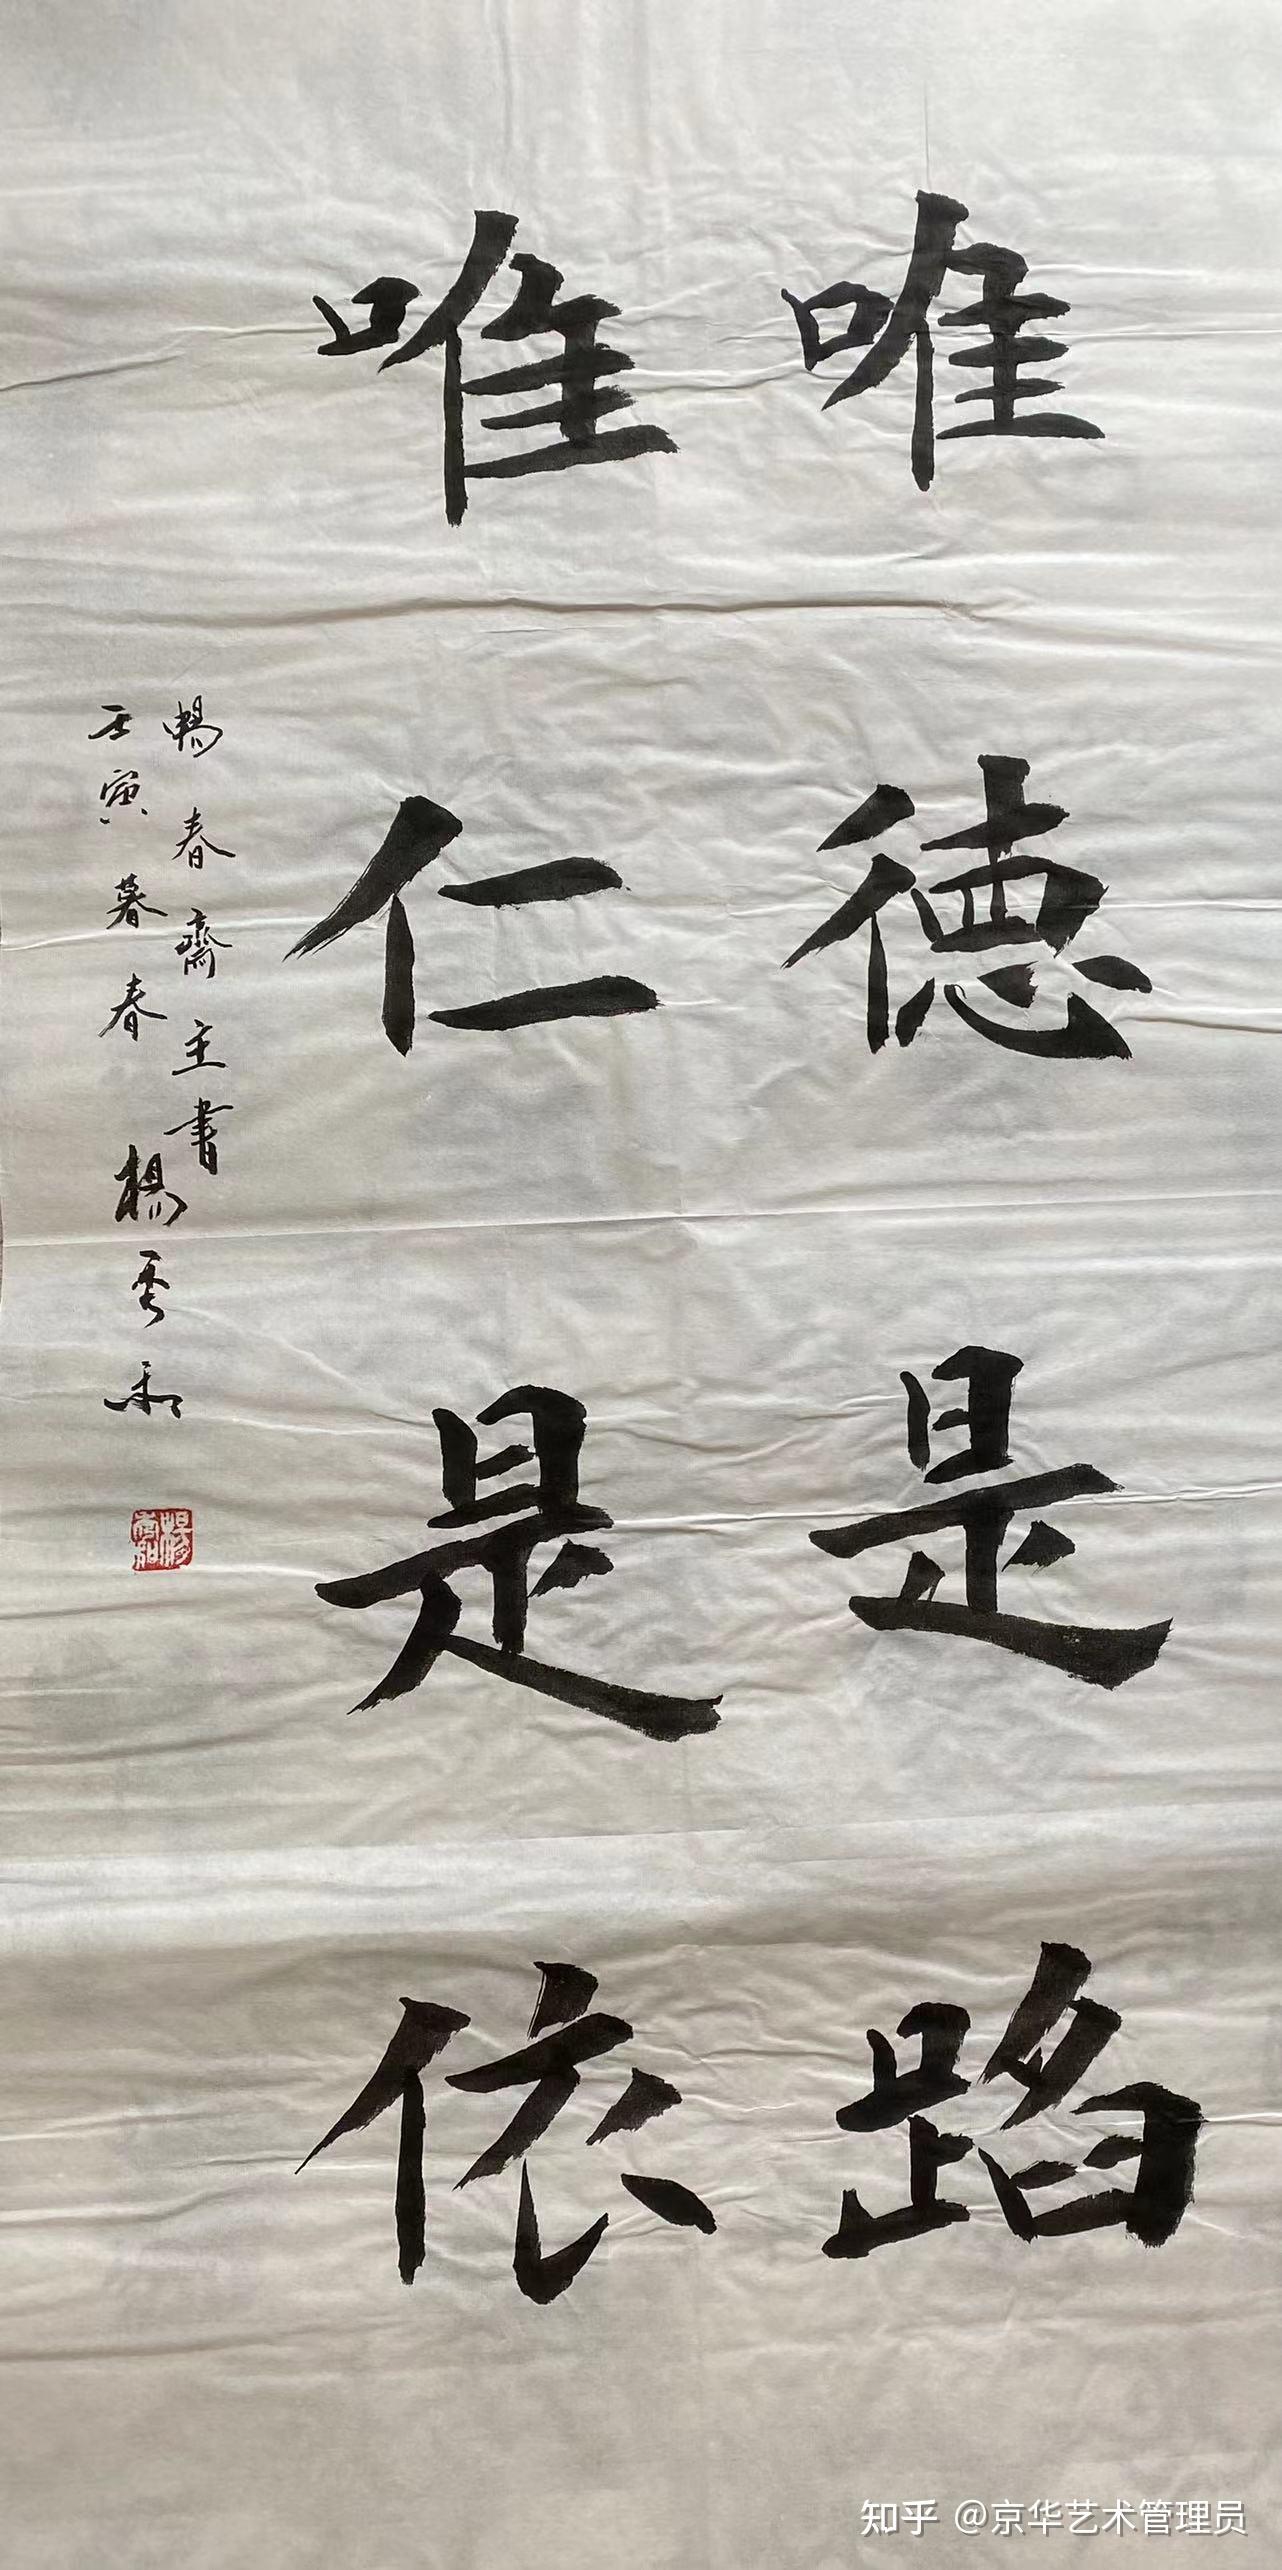 唯德是蹈
唯仁是依
暢春齋主書
壬寅暮春 楊秀和
楊秀和
知乎 @京华艺术管理员